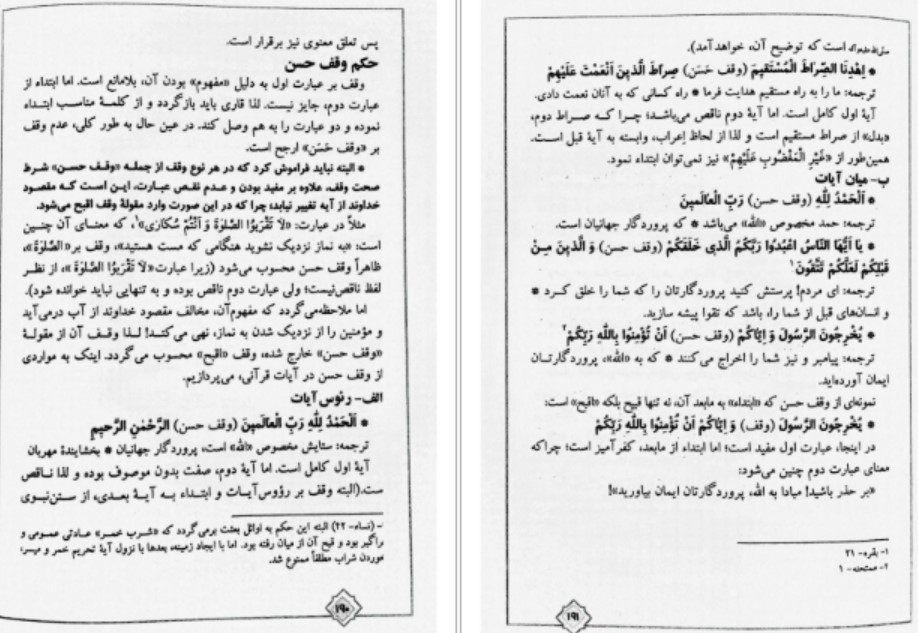 پس تعلق معنوی نیز برقرار است.
حکم وقف حسن
وقف بر عبارت اول به دلیل «مفهوم» بودن آن، بلامانع است. اما ابتداء از
عبارت دوم، جایز نیست. لذا قاری باید بازگردد و از کلمهٔ مناسب ابتداء
نموده و دو عبارت را به هم وصل کند. در عین حال به طور کلی، عدم وقف
بر «وقف حَسَن» ارجح است.
* البته نباید فراموش کرد که در هر نوع وقف از جمله «وقف حسن» شرط
صحت وقف، علاوه بر مفید بودن و عدم نقص عبارت، این است که مقصود
خداوند از آیه تغییر نیابد؛ چرا که در این صورت وارد مقولهٔ وقف اقبح می‌شود.
مثلاً در عبارت: «لاَ تَقْرَبُوا الصَّلوٰةَ وَ اَنْتُمْ سُکَارَی»۱، که معنای آن چنین
است: «به نماز نزدیک نشوید هنگامی که مست هستید»، وقف بر «الصَّلوٰةَ»،
ظاهراً وقف حسن محسوب می‌شود (زیرا عبارت «لاَ تَقْرَبُوا الصَّلوٰةَ»، از نظر
لفظ ناقص نیست؛ ولی عبارت دوم ناقص بوده و به تنهایی نباید خوانده شود).
اما ملاحظه می‌گردد که مفهوم آن، مخالف مقصود خداوند از آب درمی‌آید
و مؤمنین را از نزدیک شدن به نماز، نهی می‌کند! لذا وقف آن از مقولهٔ
«وقف حسن» خارج شده، وقف «اقبح» محسوب می‌گردد. اینک به مواردی
از وقف حسن در آیات قرآنی، می‌پردازیم.
الف- رئوس آیات
* اَلْحَمْدُ لِلّٰهِ رَبِّ الْعَالَمِینَ (وقف حسن) الرَّحْمٰنِ الرَّحِیمِ
ترجمه: ستایش مخصوص «الله» است، پروردگار جهانیان * بخشایندهٔ مهربان
آیهٔ اول کامل است. اما آیهٔ دوم، صفت بدون موصوف بوده و لذا ناقص
ست.(البته وقف بر رؤوس آیات و ابتداء به آیهٔ بعدی، از سنن نبوی
- (نساء- ۴۳) البته این حکم به اوائل بعثت برمی‌گردد که «شرب خمر» عادتی عمومی و
راگیر بود و قبح آن از میان رفته بود. اما با ایجاد زمینه، بعدها با نزول آیهٔ تحریم خمر و میسر،
موردن شراب مطلقاً ممنوع شد.
۱۹۰
است که توضیح آن، خواهد آمد).
* اِهْدِنَا الصِّرَاطَ الْمُسْتَقِیمَ (وقف حَسَن) صِرَاطَ الَّذِینَ اَنْعَمْتَ عَلَیْهِمْ
ترجمه: ما را به راه مستقیم هدایت فرما * راه کسانی که به آنان نعمت دادی.
آیهٔ اول کامل است. اما آیهٔ دوم ناقص می‌باشد؛ چرا که صراط دوم،
«بدل» از صراط مستقیم است و لذا از لحاظ اِعراب، وابسته به آیهٔ قبل است.
همین‌طور از «غَیْرِ الْمَغْضُوبِ عَلَیْهِمْ» نیز نمی‌توان ابتداء نمود.
ب- میان آیات
* اَلْحَمْدُ لِلّٰهِ (وقف حسن) رَبِّ الْعَالَمِینَ
ترجمه: حمد مخصوص «الله» می‌باشد * که پروردگار جهانیان است.
* یَا اَیُّهَا النَّاسُ اعْبُدُوا رَبَّکُمُ الَّذِی خَلَقَکُمْ (وقف حسن) وَ الَّذِینَ مِنْ
قَبْلِکُمْ لَعَلَّکُمْ تَتَّقُونَ۱
ترجمه: ای مردم! پرستش کنید پروردگارتان را که شما را خلق کرد *
و انسان‌های قبل از شما را، باشد که تقوا پیشه سازید.
* یُخْرِجُونَ الرَّسُولَ وَ اِیَّاکُمْ (وقف حسن) اَنْ تُؤْمِنُوا بِاللّٰهِ رَبِّکُمْ۲
ترجمه: پیامبر و نیز شما را اخراج می‌کنند * که به «الله»، پروردگارتان
ایمان آورده‌اید.
نمونه‌ای از وقف حسن که «ابتداء» به مابعد آن، نه تنها قبیح بلکه «اقبح» است:
* یُخْرِجُونَ الرَّسُولَ (وقف) وَ اِیَّاکُمْ اَنْ تُؤْمِنُوا بِاللّٰهِ رَبِّکُمْ
در اینجا، عبارت اول مفید است؛ اما ابتداء از مابعد، کفرآمیز است؛ چراکه
معنای عبارت دوم چنین می‌شود:
«بر حذر باشید! مبادا به الله، پروردگارتان ایمان بیاورید»!
۱- بقره- ۲۱
۲- ممتحنه- ۱
۱۹۱